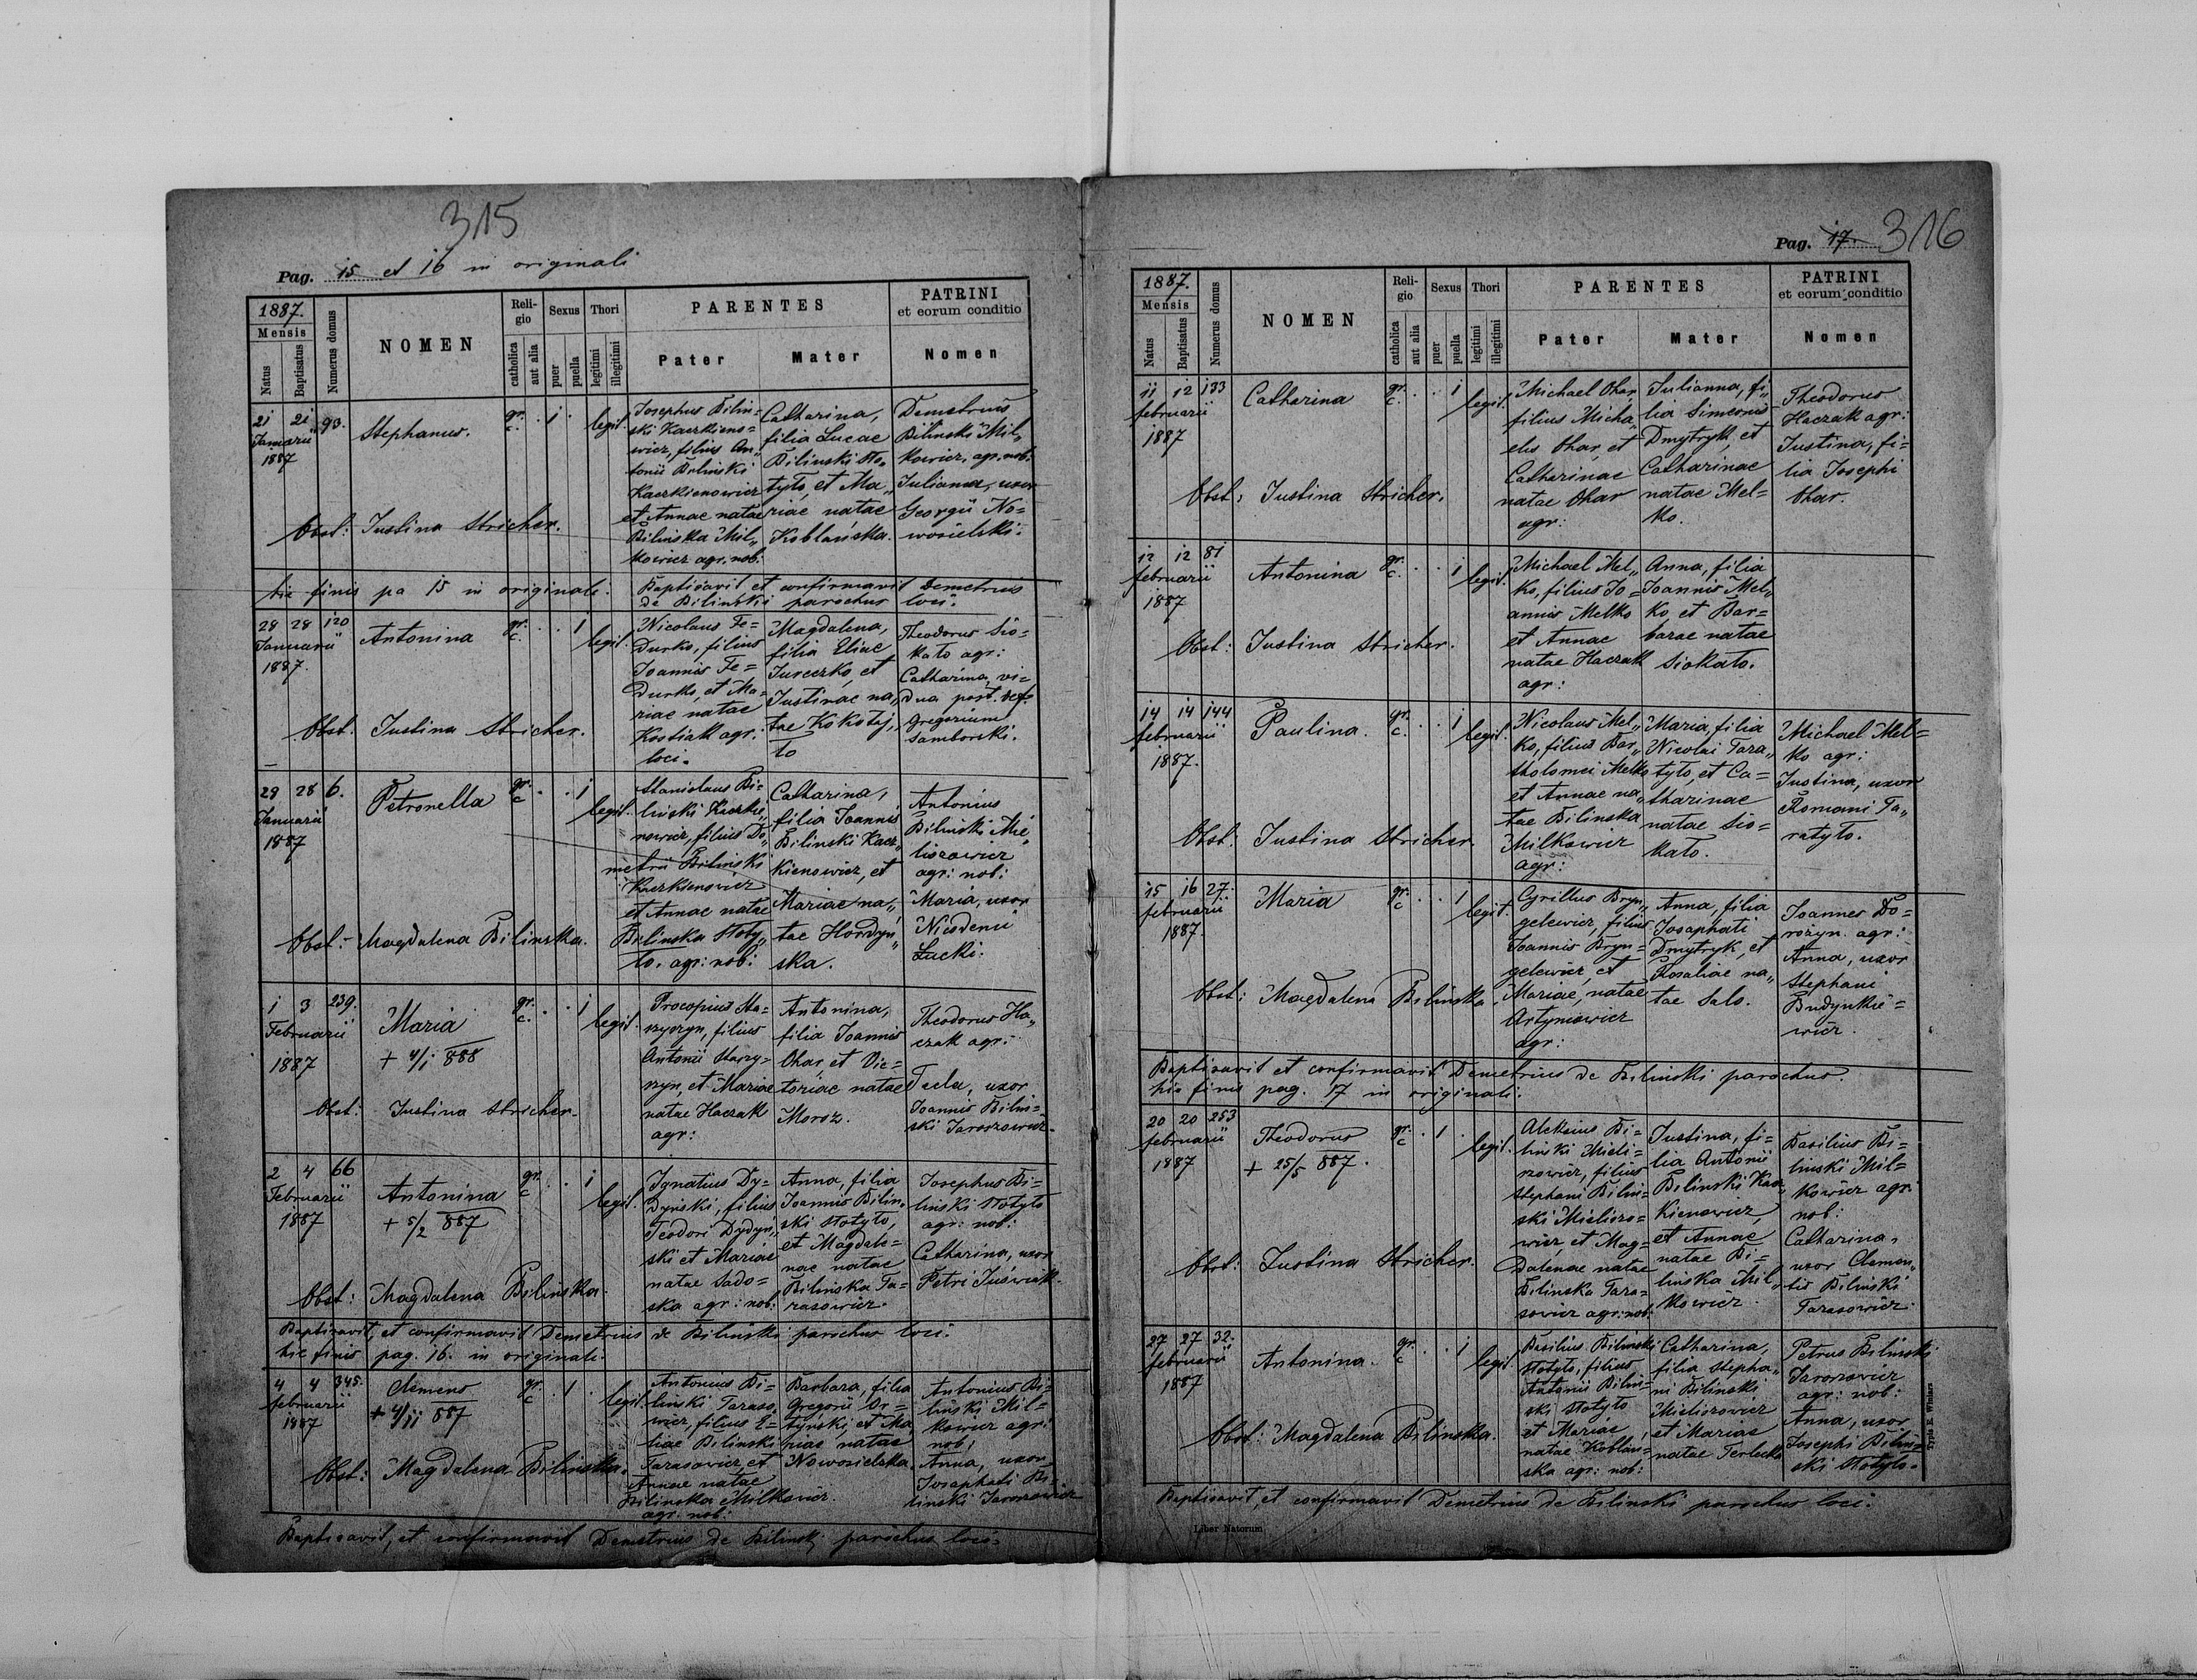 315
Pag. 15 et 16 in originali
1887.
Mensis
Natus
Baptisatus
Numerus domus
NOMEN
Religio
catholica
aut alia
Sexus
puer
puella
Thori
legitimi
illegitimi
PARENTES
Pater
Mater
PATRINI
et eorum conditio
Nomen
21 21 93.
Januarii
1887
Stephanus.
gr. c. . 1 . legit.
Josephus Bilin=
ski Kaczkieno=
wicz, filius An„
tonii Bilinski
Kaczkienowicz
et Annae natae
Bilinska Mil„
kowicz agr. nob:
Catharina,
filia Lucae
Bilinski Sto„
tyto, et Ma„
riae natae
Koblańska.
Demetrius
Bilinski Mil„
kowicz, agr. nob:
Julianna, uxor
Georgii No=
wosielski.
Obst: Justina Stricher.
hic finis pa 15 in originali.
Baptisavit et confirmavit Demetrius
de Bilinski parochus loci.
28 28 120
Januarii
1887.
Antonina
gr. c. . . 1 legit.
Nicolaus Fe=
durko, filius
Joannis Fe=
durko, et Ma=
riae natae
Kostiak agr:
loci.
Magdalena,
filia Eliae
Jureczko, et
Justinae na„
tae Kokotaj,
to
Theodorus Sio=
kato agr:
Catharina, vi=
dua post. def.
Gregorium
Samborski.
Obst. Justina Stricher.
29 28 6.
Januarii
1887
Petronella
gr. c . . 1 legit.
Stanislaus Bi=
linski Kaczkie„
nowicz, filius De„
metrii Bilinski
Kaczkienowicz
et Annae natae
Bilinska Stoty„
to. agr: nob:
Catharina,
filia Joannis
Bilinski Kacz„
kienowicz, et
Mariae na„
tae Hordyń„
ska.
Antonius
Bilinski Mie„
liszowicz
agr: nob:
Maria, uxor
Nicodemi
Łucki.
Obst: Magdalena Bilinska.
1 3 239.
Februarii
1887
Maria
+ 4/1 888
gr. c. . . 1 legit.
Procopius Sta=
rzyczyn, filius
Antonii Starzy=
czyn, et Mariae
natae Haczak
agr:
Antonina,
filia Joannis
Ohar et Vic=
toriae natae
Moroz.
Theodorus Ha„
czak agr:
Tecla, uxor
Joannis Bilin=
ski Jaroszowicz.
Obst: Justina Stricher.
2 4 66
Februarii
1887
Antonina
+ 5/2 887
gr. c . . 1 legit.
Ignatius Dy=
dyński, filius
Teodori Dydyń„
ski et Mariae
natae Sado=
ska agr: nob:
Anna, filia
Joannis Bilin„
ski Stotyto,
et Magdale=
nae natae
Bilinska Ta=
rasowicz.
Josephus Bi=
linski Stotyto
agr: nob:
Catharina, uxor
Petri Juświak.
Obst: Magdalena Bilinska.
Baptisavit, et confirmavit Demetrius de Bilinski parochus loci.
hic finis pag. 16. in originali.
4 4 345.
februarii
1887
Clemens
+ 4/11 887
gr. c . 1 . legit.
Antonius Bi=
linski Taraso„
wicz, filius E=
liae Bilinski
Tarasowicz, et
Annae natae
Bilinska Milkowicz.
agr: nob:
Barbara, filia
Gregorii Or=
tyński, et Ma„
riae natae
Nowosielska.
Antonius Bi=
linski Mil=
kowicz agr:
nob:
Anna, uxor
Josaphati Bi=
linski Jaroszowicz
Obst: Magdalena Bilinska.
Baptisavit, et confirmavit Demetrius de Bilinski parochus loci.
Pag. 17. 316
1887.
Mensis
Natus
Baptisatus
Numerus domus
NOMEN
Religio
catholica
aut alia
Sexus
puer
puella
Thori
legitimi
illegitimi
PARENTES
Pater
Mater
PATRINI
et eorum conditio
Nomen
11 12 133
februarii
1887
Catharina
gr. c. . . 1 legit.
Michael Ohar,
filius Micha„
elis Ohar, et
Catharinae
natae Ohar
agr:
Julianna, fi„
lia Simeonis
Dmytryk, et
Catharinae
natae Mel=
ko.
Theodorus
Haczak agr:
Justina, fi=
lia Josephi
Ohar.
Obst: Justina Stricher.
12 12 81
februarii
1887
Antonina
gr. c. . . 1 legit.
Michael Mel„
ko, filius Jo=
annis Melko
et Annae
natae Haczak
agr:
Anna, filia
Joannis Mel„
ko, et Bar=
barae natae
Siokato.
Obst: Justina Stricher.
14 14 144
februarii
1887.
Paulina.
gr. c. . . 1 legit.
Nicolaus Mel„
ko, filius Bar„
tholomei Melko
et Annae na„
tae Bilinska
Milkowicz
agr:
Maria, filia
Nicolai Tara„
tyto, et Ca=
tharinae
natae Sio=
kato.
Michael Mel=
ko agr:
Justina, uxor
Romani Ta„
ratyto.
Obst: Justina Stricher.
15 16 27.
februarii
1887.
Maria
gr. c . . 1 legit.
Cyrillus Bryn„
gelewicz, filius
Joannis Bryn=
gelewicz, et
Mariae, natae
Artymowicz
agr:
Anna, filia
Josaphati
Dmytryk, et
Rosaliae na„
tae Salo.
Joannes Do=
rożyn. agr:
Anna, uxor
Stephani
Budynkie=
wicz.
Obst: Magdalena Bilinska.
Baptisavit et confirmavit Demetrius de Bilinski parochus.
hic finis pag. 17 in originali.
20 20 253
februarii
1887
Theodorus
+ 25/5 887.
gr. c . 1 . legit.
Aleksius Bi=
linski Mieli=
szowicz, filius
Stephani Bilin=
ski Mieliszo=
wicz, et Mag=
dalenae natae
Bilinska Tara=
sowicz agr: nob:
Justina, fi=
lia Antonii
Bilinski Kacz„
kienowicz,
et Annae
natae Bi=
linska Mil„
kowicz.
Basilius Bi=
linski Mil=
kowicz agr:
nob:
Catharina,
uxor Clemen„
tis Bilinski
Tarasowicz.
Obst: Justina Stricher.
27 27 32.
februarii
1887
Antonina.
gr. c . . 1 legit.
Basilius Bilinski
Stotyto, filius
Antonii Bilin=
ski Stotyto
et Mariae,
natae Koblan=
ska agr: nob:
Catharina,
filia Stepha„
ni Bilinski
Mieliszowicz
et Mariae
natae Terlecka
Petrus Bilinski
Jaroszowicz
agr: nob:
Anna, uxor
Josephi Bilin=
ski Stotyto.
Obst: Magdalena Bilinska.
Baptisavit, et confirmavit Demetrius de Bilinski parochus loci.
Liber Natorum
Typis E. Winiarz